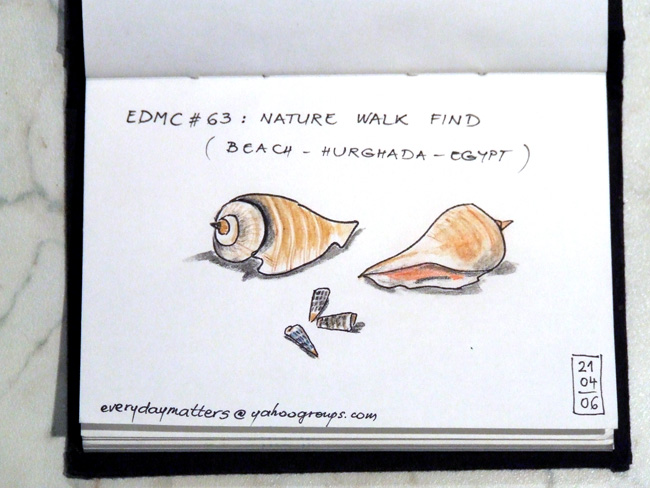 EDMC # 63 : NATURE WALK FIND
( BEACH - HURGHADA - EGYPT )
everydaymatters@yahoogroups.com
21
04
06